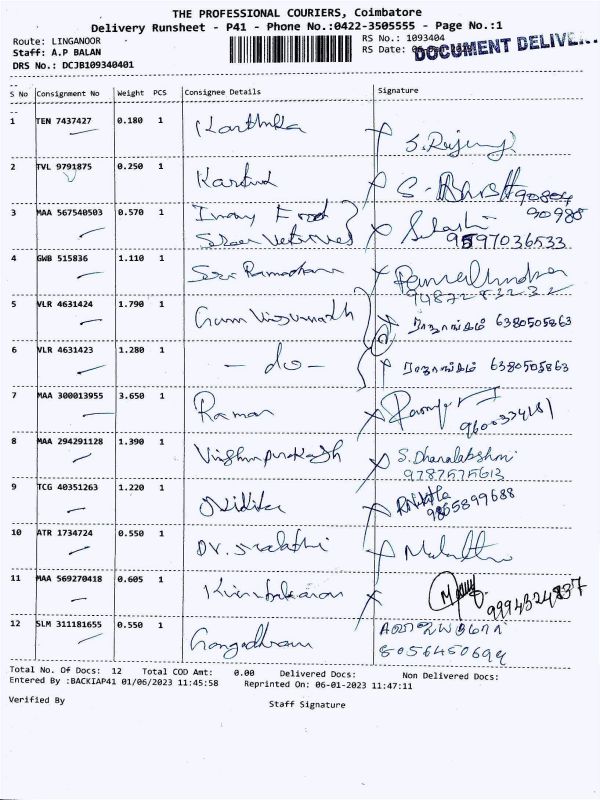 THE PROFESSIONAL COURIERS, Coimbatore
Delivery Runsheet - P41 - Phone No.:0422-3505555 - Page No.:1
Route: LINGANOOR
RS No.: 1093404
Staff: A.P BALAN
RS Date: 06
DOCUMENT DELIVE
DRS No.: DCJB109340401
S No Consignment No Weight PCS Consignee Details Signature
1 TEN 7437427 0.180 1 Karthika
2 TVL 9791875 0.250 1 90804
90988
3 MAA 567540503 0.570 1 Ivory Food
9597036533
4 GWB 515836 1.110 1 Sree
9487283232
5 VLR 4631424 1.790 1 6380505863
6 VLR 4631423 1.280 1 - do - 6380505863
7 MAA 300013955 3.650 1 Raman
9600334181
8 MAA 294291128 1.390 1 S. Dhanalakshmi
9787575613
9 TCG 40351263 1.220 1
9865899688
10 ATR 1734724 0.550 1 Malathi
11 MAA 569270418 0.605 1
9994324837
12 SLM 311181655 0.550 1
8056450694
Total No. Of Docs: 12 Total COD Amt: 0.00 Delivered Docs: Non Delivered Docs:
Entered By :BACKIAP41 01/06/2023 11:45:58 Reprinted On: 06-01-2023 11:47:11
Verified By
Staff Signature